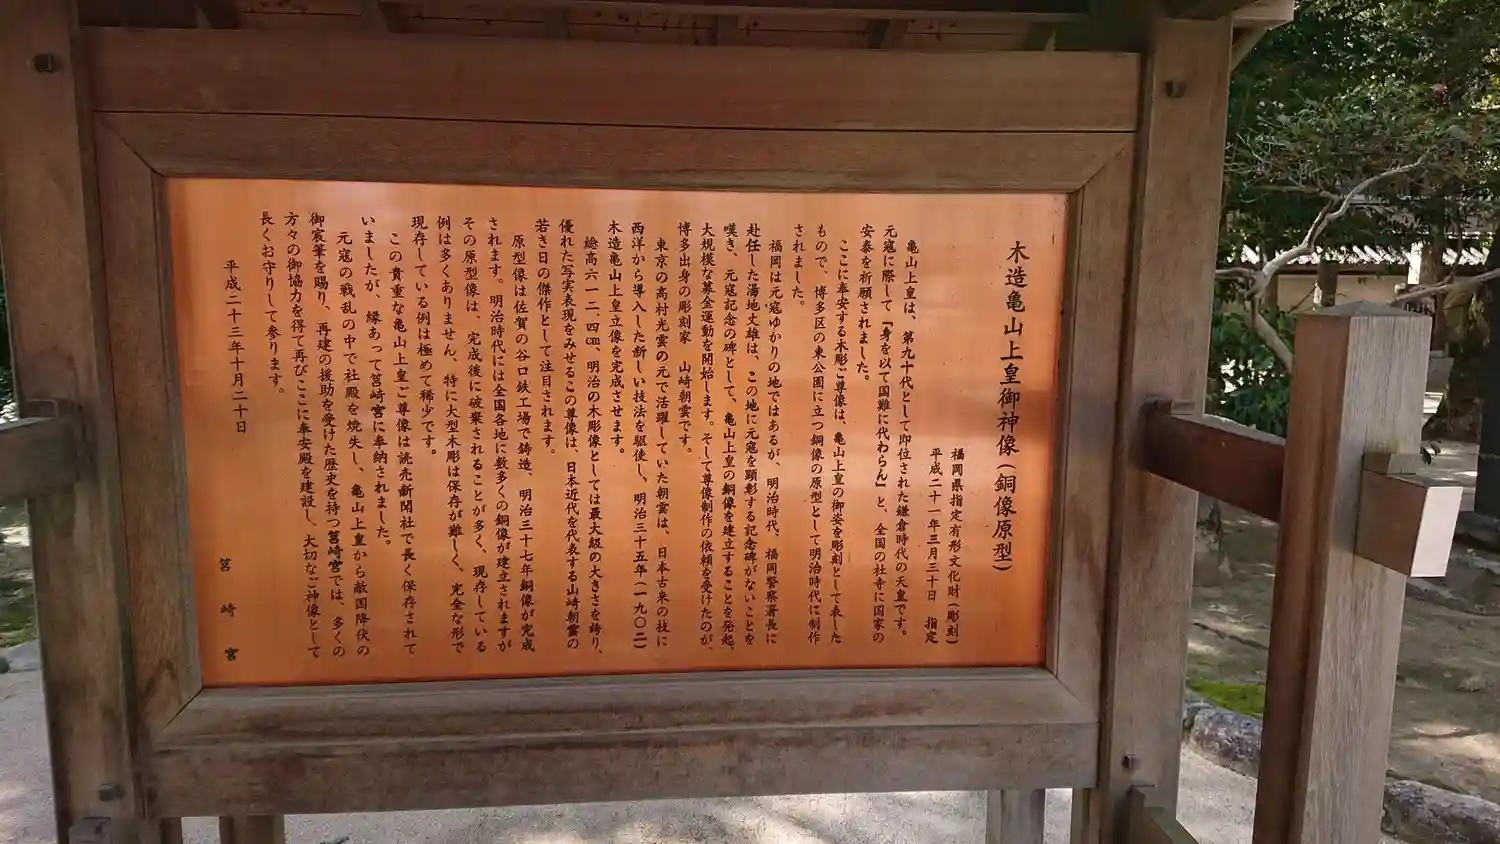 木造亀山上皇御神像(銅像原型)
福岡県指定有形文化財(彫刻)
平成二十一年三月三十日 指定
亀山上皇は、第九十代として即位された鎌倉時代の天皇です。
元寇に際して「身を以て国難に代わらん」と、全国の社寺に国家の
安泰を祈願されました。
ここに奉安する木彫ご尊像は、亀山上皇の御姿を彫刻として表した
もので、博多区の東公園に立つ銅像の原型として明治時代に制作
されました。
福岡は元寇ゆかりの地ではあるが、明治時代、福岡警察署長に
赴任した湯地丈雄は、この地に元寇を顕彰する記念碑がないことを
嘆き、元寇記念の碑として、亀山上皇の銅像を建立することを発起、
大規模な募金運動を開始します。そして尊像制作の依頼を受けたのが、
博多出身の彫刻家 山崎朝雲です。
東京の高村光雲の元で活躍していた朝雲は、日本古来の技に
西洋から導入した新しい技法を駆使し、明治三十五年(一九〇二)
木造亀山上皇立像を完成させます。
総高六一二、四㎝ 明治の木彫像としては最大級の大きさを誇り、
優れた写実表現をみせるこの尊像は、日本近代を代表する山崎朝雲の
若き日の傑作として注目されます。
原型像は佐賀の谷口鉄工場で鋳造、明治三十七年銅像が完成
されます。明治時代には全国各地に数多くの銅像が建立されますが
その原型像は、完成後に破棄されることが多く、現存している
例は多くありません、特に大型木彫は保存が難しく、完全な形で
現存している例は極めて稀少です。
この貴重な亀山上皇ご尊像は読売新聞社で長く保存されて
いましたが、縁あって筥崎宮に奉納されました。
元寇の戦乱の中で社殿を焼失し、亀山上皇から敵国降伏の
御宸筆を賜り、再建の援助を受けた歴史を持つ筥崎宮では、多くの
方々の御協力を得て再びここに奉安殿を建設し、大切なご神像として
長くお守りして参ります。
平成二十三年十月二十日
筥崎宮